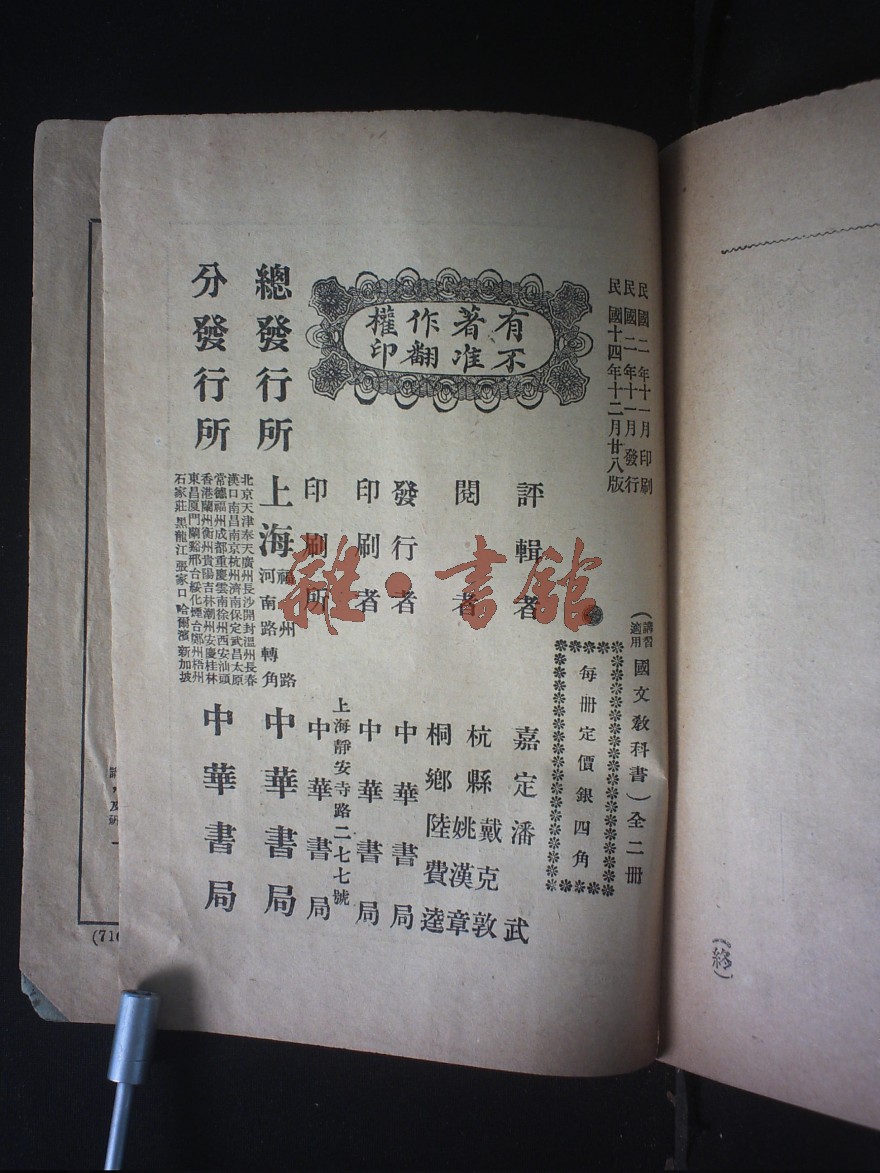 民國二年十一月印刷
民國二年十一月發行
民國十四年十二月廿八版
（講習適用國文教科書）全二冊
每冊定價銀四角
有著作權
不准翻印
評輯者 嘉定潘武
閱者 杭縣戴克敦
姚漢章
桐鄉陸費逵
發行者 中華書局
印刷者 中華書局
印刷所 上海靜安寺路二七七號 中華書局
總發行所 上海福州路河南路轉角 中華書局
分發行所
北京天津奉天廣州長沙開封溫州長春
漢口南昌南京杭州濟南保定武昌太原
常德福州成都重慶雲南徐州西安汕頭
香港蘭州衡州貴陽吉林潮州安慶桂林
東昌厦門蘭谿邢台綏化煙台鄭州梧州
石家莊黑龍江張家口哈爾濱新加坡
中華書局
雜·書館
（終）
(716